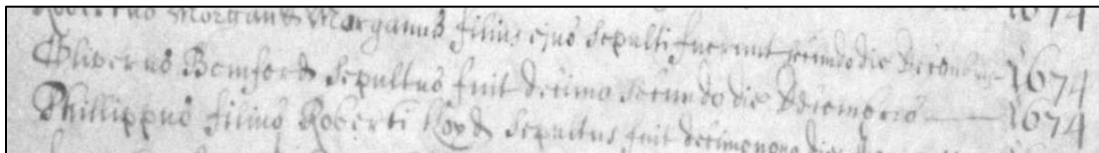 Robertus Morgan & Morganus filius ejus sepulti fuerunt secundo die Decembris 1674
Oliverus Bomford sepultus fuit decimo secundo die Decembris 1674
Phillippus filius Roberti sepultus fuit decimonono die 1674